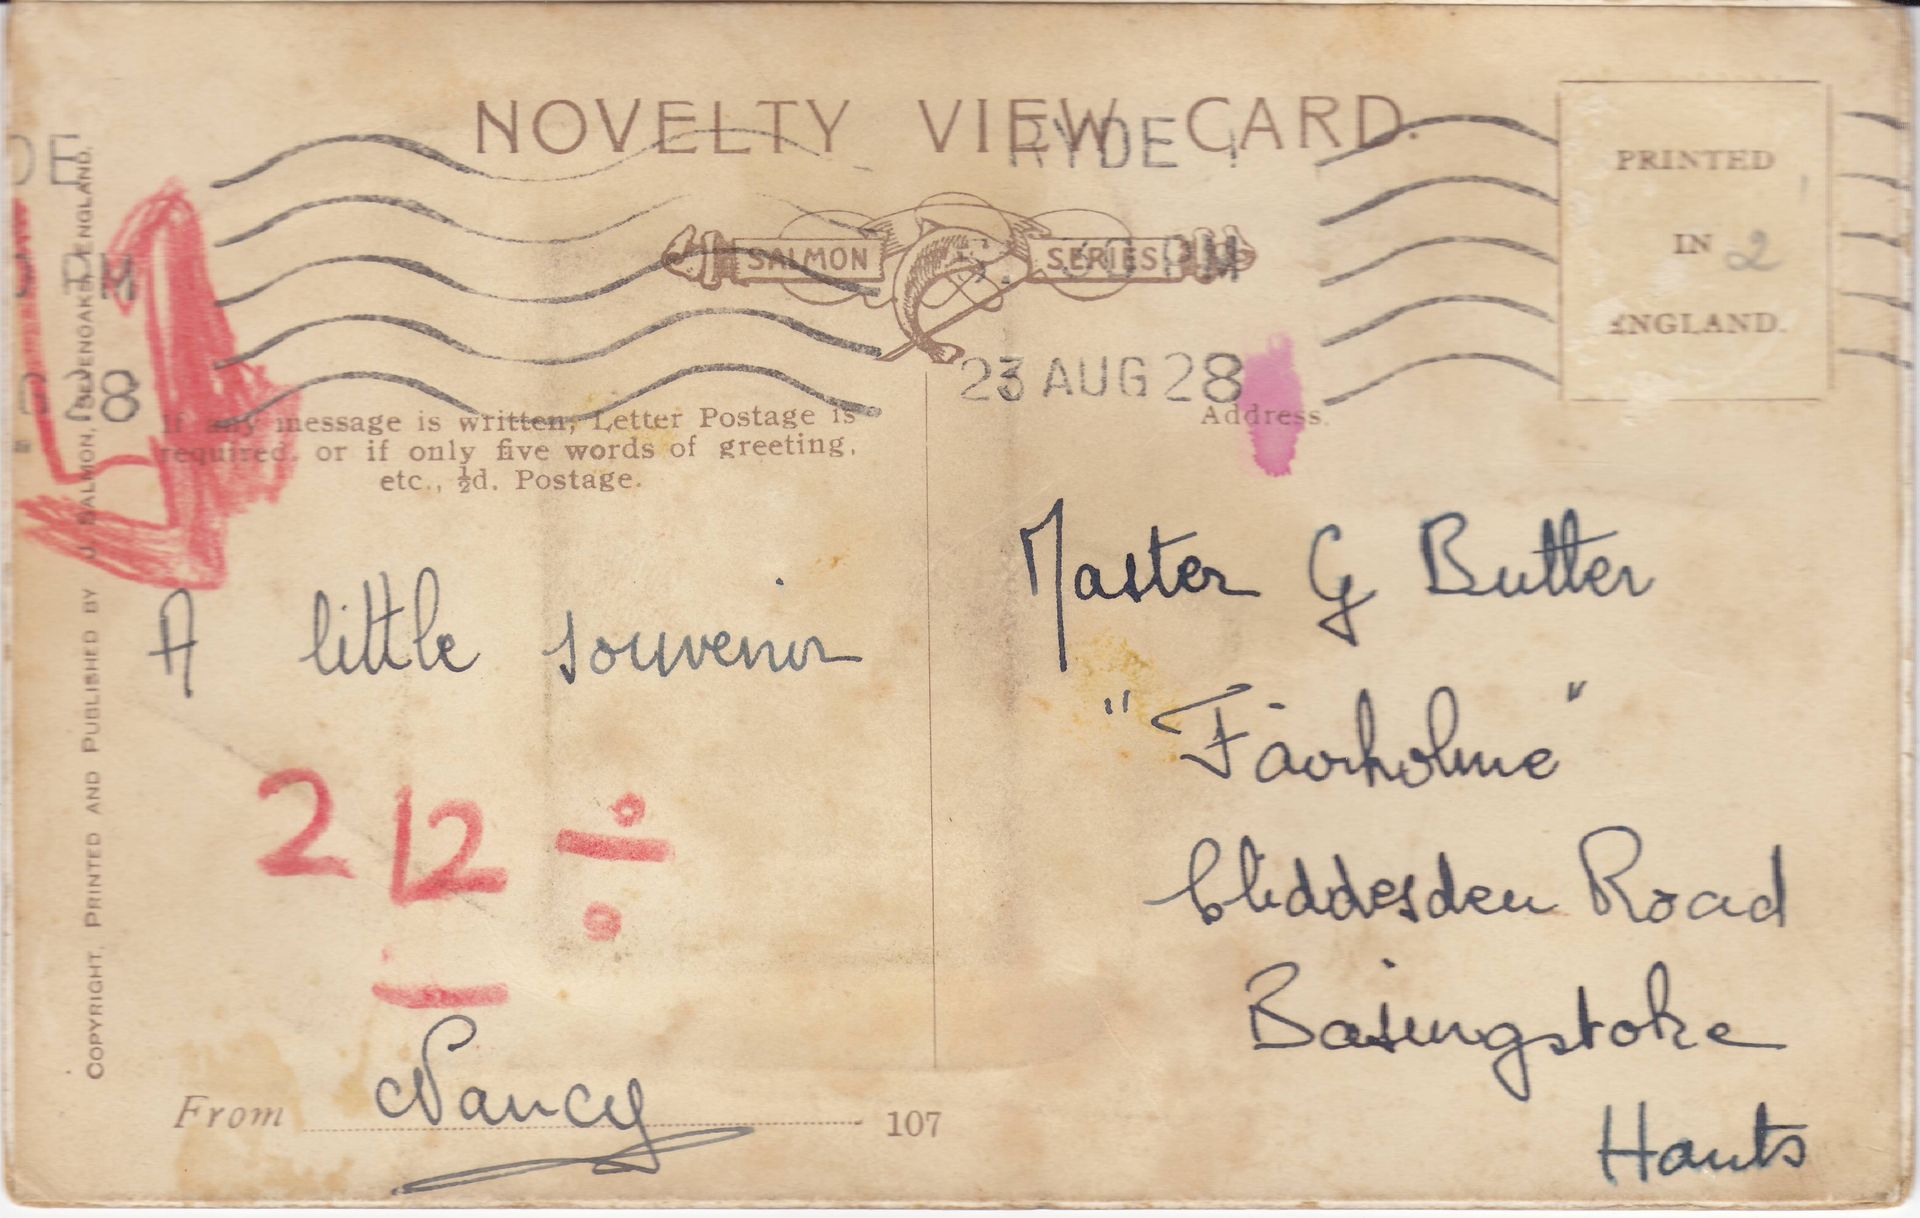 NOVELTY VIEW CARD.
RYDE
SALMON SERIES
PM
23 AUG 28
PRINTED
IN 2
ENGLAND.
If any message is written, Letter Postage is
required, or if only five words of greeting,
etc., ½d. Postage.
Address.
A little souvenir
2 12 ÷
From Nancy 107
Master G Butler
"Fairholme"
Cliddesden Road
Basingstoke
Hants
COPYRIGHT, PRINTED AND PUBLISHED BY J. SALMON, SEVENOAKS, ENGLAND.
DE
PM
8